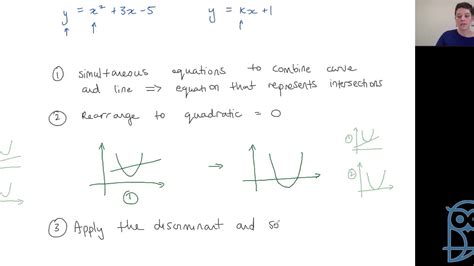 y = x² + 3x - 5 y = kx + 1
① simultaneous equations to combine curve
and line => equation that represents intersections
② Rearrange to quadratic = 0
①
②
①
③ Apply the discriminant and so